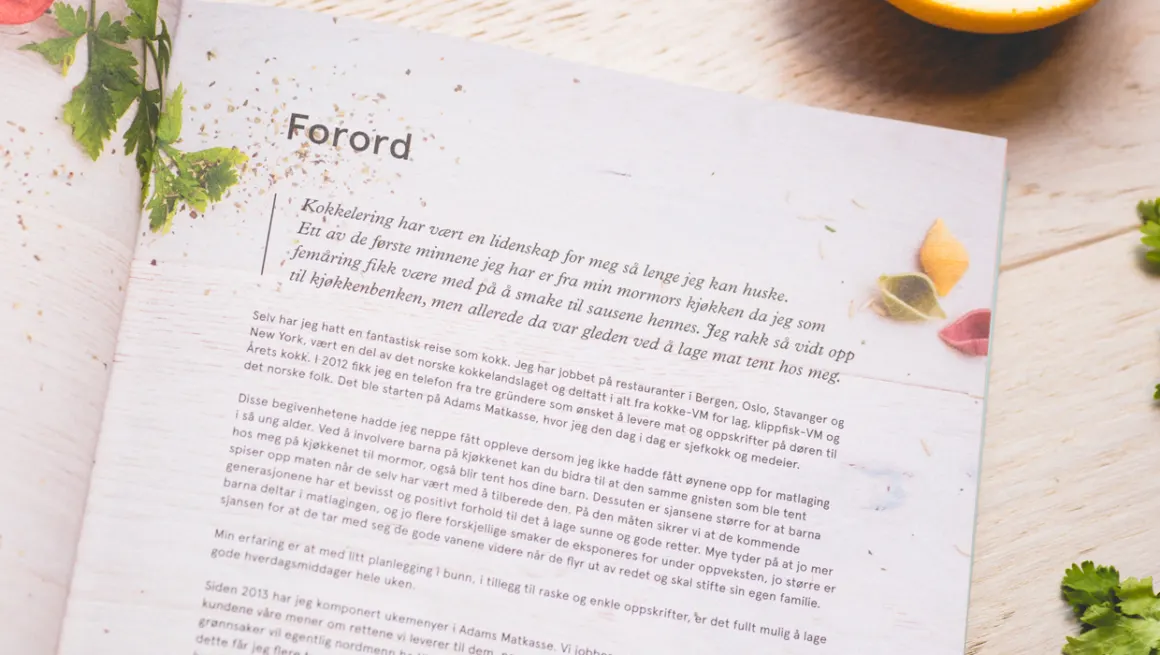 Forord
Kokkelering har vært en lidenskap for meg så lenge jeg kan huske.
Ett av de første minnene jeg har er fra min mormors kjøkken da jeg som
femåring fikk være med på å smake til sausene hennes. Jeg rakk så vidt opp
til kjøkkenbenken, men allerede da var gleden ved å lage mat tent hos meg.
Selv har jeg hatt en fantastisk reise som kokk. Jeg har jobbet på restauranter i Bergen, Oslo, Stavanger og
New York, vært en del av det norske kokkelandslaget og deltatt i alt fra kokke-VM for lag, klippfisk-VM og
Årets kokk. I 2012 fikk jeg en telefon fra tre gründere som ønsket å levere mat og oppskrifter på døren til
det norske folk. Det ble starten på Adams Matkasse, hvor jeg den dag i dag er sjefkokk og medeier.
Disse begivenhetene hadde jeg neppe fått oppleve dersom jeg ikke hadde fått øynene opp for matlaging
i så ung alder. Ved å involvere barna på kjøkkenet kan du bidra til at den samme gnisten som ble tent
hos meg på kjøkkenet til mormor, også blir tent hos dine barn. Dessuten er sjansene større for at barna
spiser opp maten når de selv har vært med å tilberede den. På den måten sikrer vi at de kommende
generasjonene har et bevisst og positivt forhold til det å lage sunne og gode retter. Mye tyder på at jo mer
barna deltar i matlagingen, og jo flere forskjellige smaker de eksponeres for under oppveksten, jo større er
sjansen for at de tar med seg de gode vanene videre når de flyr ut av redet og skal stifte sin egen familie.
Min erfaring er at med litt planlegging i bunn, i tillegg til raske og enkle oppskrifter, er det fullt mulig å lage
gode hverdagsmiddager hele uken.
Siden 2013 har jeg komponert ukemenyer i Adams Matkasse. Vi jobber
kundene våre mener om rettene vi leverer til dem, og
grønnsaker vil egentlig nordmenn ha
dette får jeg flere